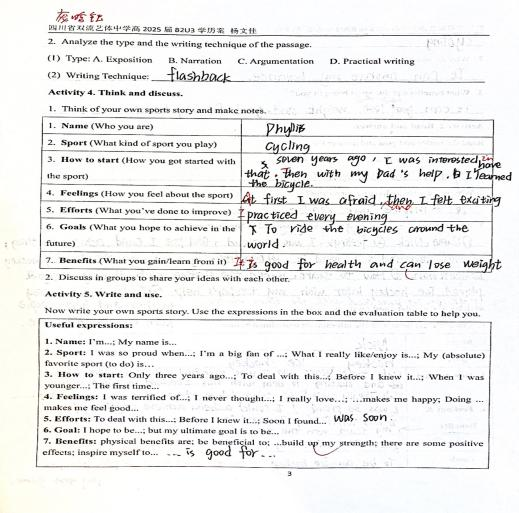 四川省双流艺体中学高 2025 届 B2U3 学历案 杨文佳
2. Analyze the type and the writing technique of the passage.
(1) Type: A. Exposition B. Narration C. Argumentation D. Practical writing
(2) Writing Technique: flashback
Activity 4. Think and discuss.
1. Think of your own sports story and make notes.
1. Name (Who you are) Phyllis
2. Sport (What kind of sport you play) Cycling
3. How to start (How you got started with the sport) seven years ago, I was interested in
that. Then with my Dad's help, I have learned
the bicycle.
4. Feelings (How you feel about the sport) At first I was afraid, then I felt exciting
5. Efforts (What you've done to improve) I practiced every evening
6. Goals (What you hope to achieve in the future) To ride the bicycles around the
world.
7. Benefits (What you gain/learn from it) It is good for health and can lose weight
2. Discuss in groups to share your ideas with each other.
Activity 5. Write and use.
Now write your own sports story. Use the expressions in the box and the evaluation table to help you.
Useful expressions:
1. Name: I'm...; My name is...
2. Sport: I was so proud when...; I'm a big fan of ...; What I really like/enjoy is...; My (absolute)
favorite sport (to do) is...
3. How to start: Only three years ago...; To deal with this...; Before I knew it...; When I was
younger...; The first time...
4. Feelings: I was terrified of...; I never thought...; I really love...; ...makes me happy; Doing ...
makes me feel good...
5. Efforts: To deal with this...; Before I knew it...; Soon I found... was soon.
6. Goal: I hope to be...; but my ultimate goal is to be...
7. Benefits: physical benefits are; be beneficial to; ...build up my strength; there are some positive
effects; inspire myself to... ... is good for ...
3